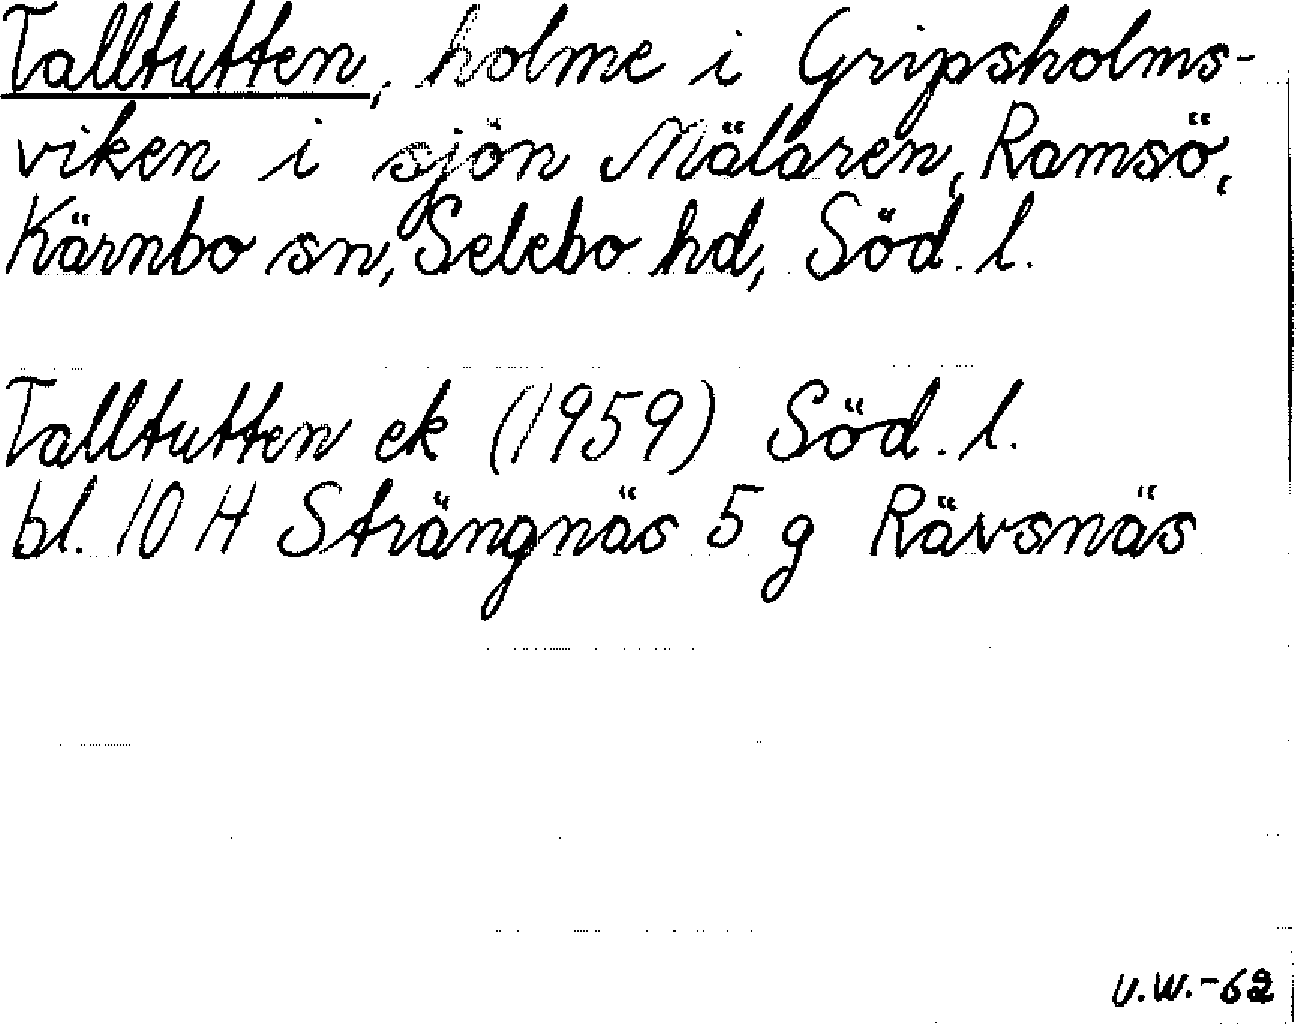 Talltutten, holme i Gripsholms-
viken i sjön Mälaren, Ramsö,
Kärnbo sn, Selebo hd, Söd. l.
Talltutten ek (1959) Söd. l.
bl. 10 H Strängnäs 5 g Rävsnäs
U.W.-62